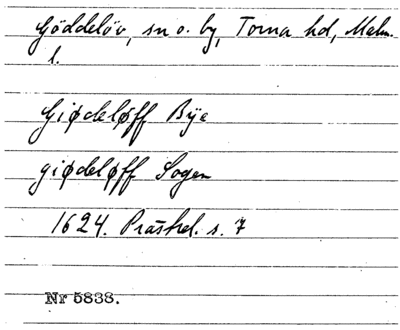 Göddelöv, sn o. by, Torna hd, Malm.
l.
Giødeløff Bye
giødeløff Sogen
1624. Prästrel. s. 7
Nr 5838.